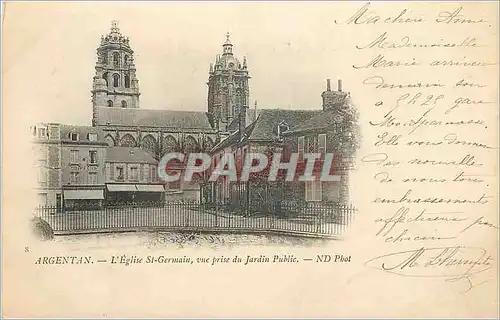 Ma chère Anne,
Mademoiselle
Marie arrivera
demain soir
à 5h25 gare
Montparnasse.
Elle vous donnera
des nouvelles
de nous tous.
embrassements
affectueux
CARTE
POSTALE
CPARAMA
8
ARGENTAN. — L'Église St-Germain, vue prise du Jardin Public. — ND Phot